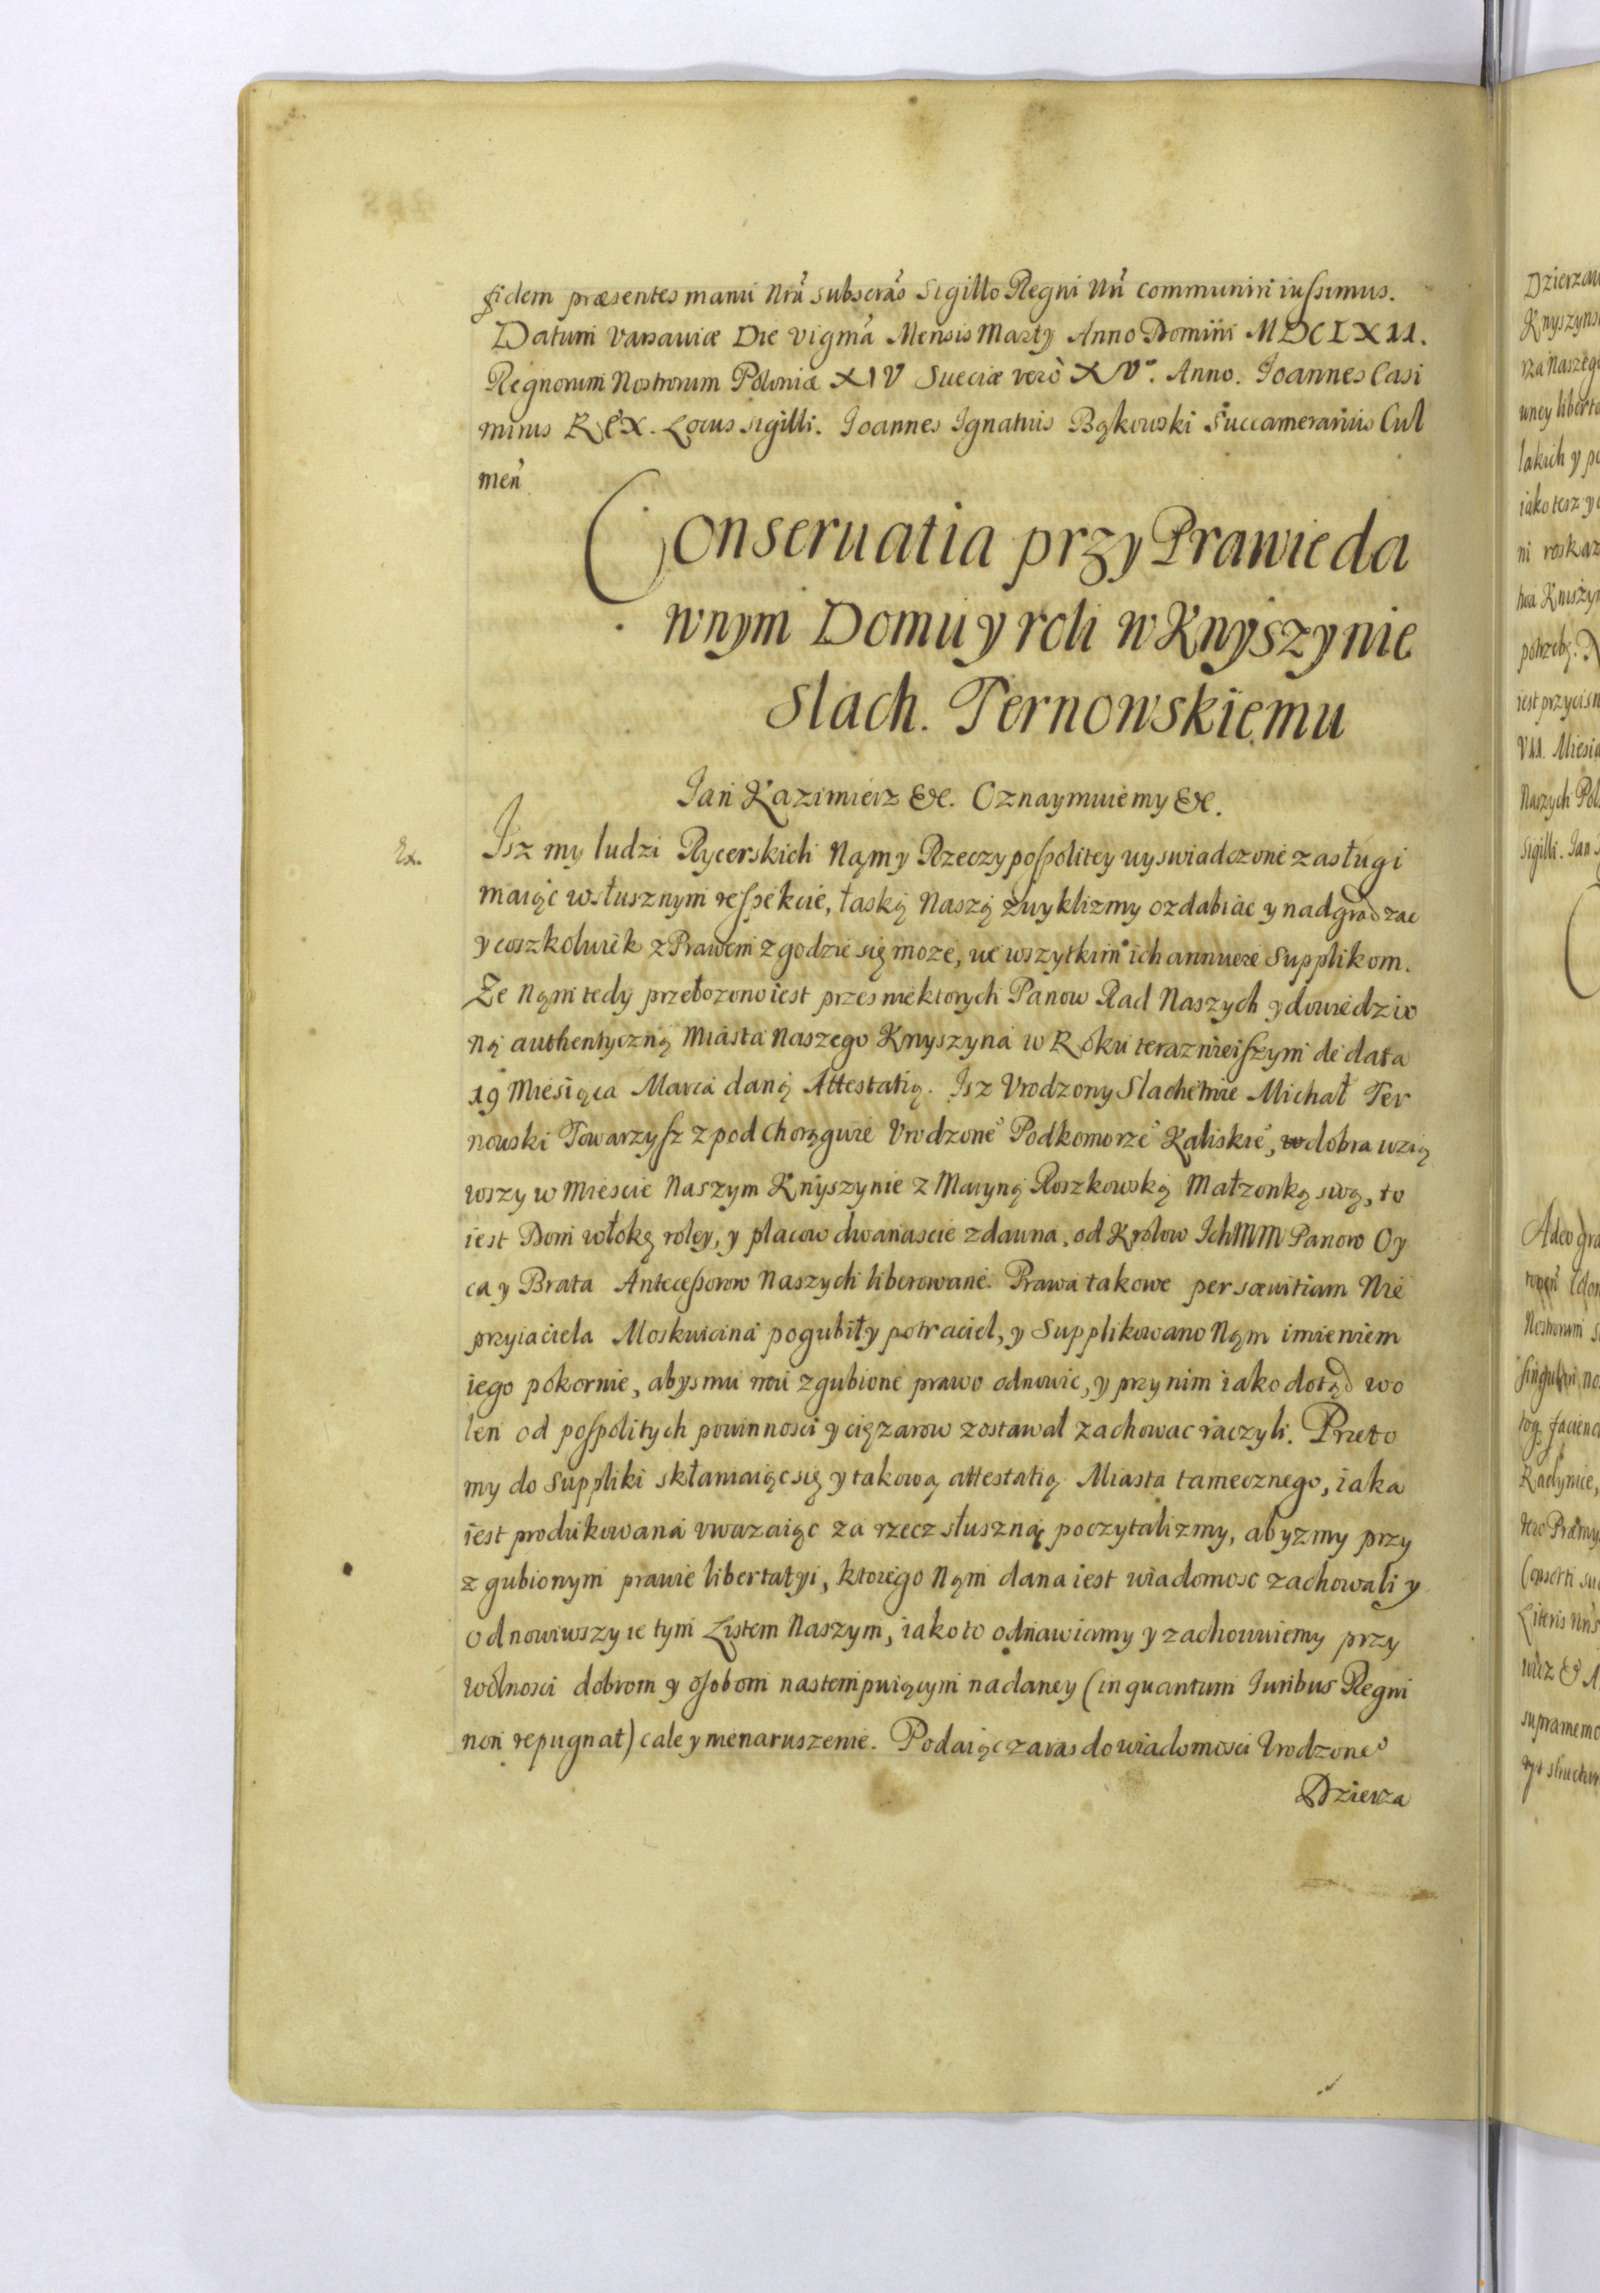 fidem præsentes manu Nrã subscrãs Sigillo Regni Nrĩ communiri iussimus.
Datum Varsaviæ Die vigmã Mensis Marty Anno Domini MDCLXII.
Regnorum Nostrorum Poloniæ XIV Sueciæ verò XVº. Anno. Joannes Casi
mirus REX. Locus sigilli. Joannes Ignatius Bąkowski Succamerarius Cul
meñ
Conseruatia przy Prawie da
wnym Domu y roli w Knyszynie
Slach. Ternowskiemu
Jan Kazimierz &c. Oznaymuiemy &c.
Ex.
Jsz my ludzi Rycerskich Nąm y Rzeczypospolitey uyswiadczone zasługi
maiąc w słusznym respekcie, łaską Naszą zwyklizmy ozdabiac y nadgradzac
y coszkolwiek z Prawem zgodzic się może, we wszytkim ich annuere Supplikom.
Ze Nąm tedy przełozono iest przes niektorych Panow Rad Naszych y dowiedzio
ną authentyczną Miasta Naszego Knyszyna w Roku teraznieiszym de data
19 Miesiąca Marca daną Attestatią. Jsz Vrodzony Slachetnie Michał Ter
nowski Towarzysz z pod Chorągwie Vrodzone° Podkomorze° Kaliskie°, dobra wzią
wszy w Miescie Naszym Knyszynie z Maryną Roszkowską Małzonką swą, to
iest Dom włokę roley, y placow dwanascie zdawna, od Krolow Ich MM Panow Oy
ca y Brata Antecessorow Naszych liberowane. Prawa takowe per sævitiam Nie
przyiaciela Moskwicina pogubił y potraciel, y Supplikowano Nąm imieniem
iego pokornie, abysmu mu zgubione prawo odnowic, y przy nim iako dotąd wo
len od pospolitych powinnosci y cięzarow zostawał zachowac raczyli. Przeto
my do Suppliki skłaniaiąc się y takową attestatią Miasta tamecznego, iaka
iest produkowana vwazaiąc za rzecz słuszną poczytalizmy, abyzmy przy
zgubionym prawie libertatyi, ktorego Nąm dana iest wiadomosc zachowali y
odnowiwszy ie tym Listem Naszym, iakoto odnawiamy y zachowuiemy przy
wolnosci dobrom y osobom nastempuiącym nadaney (in quantum Juribus Regni
non repugnat) cale y nienaruszenie. Podaiąc zaras do wiadomosci Vrodzone°
Dzierza